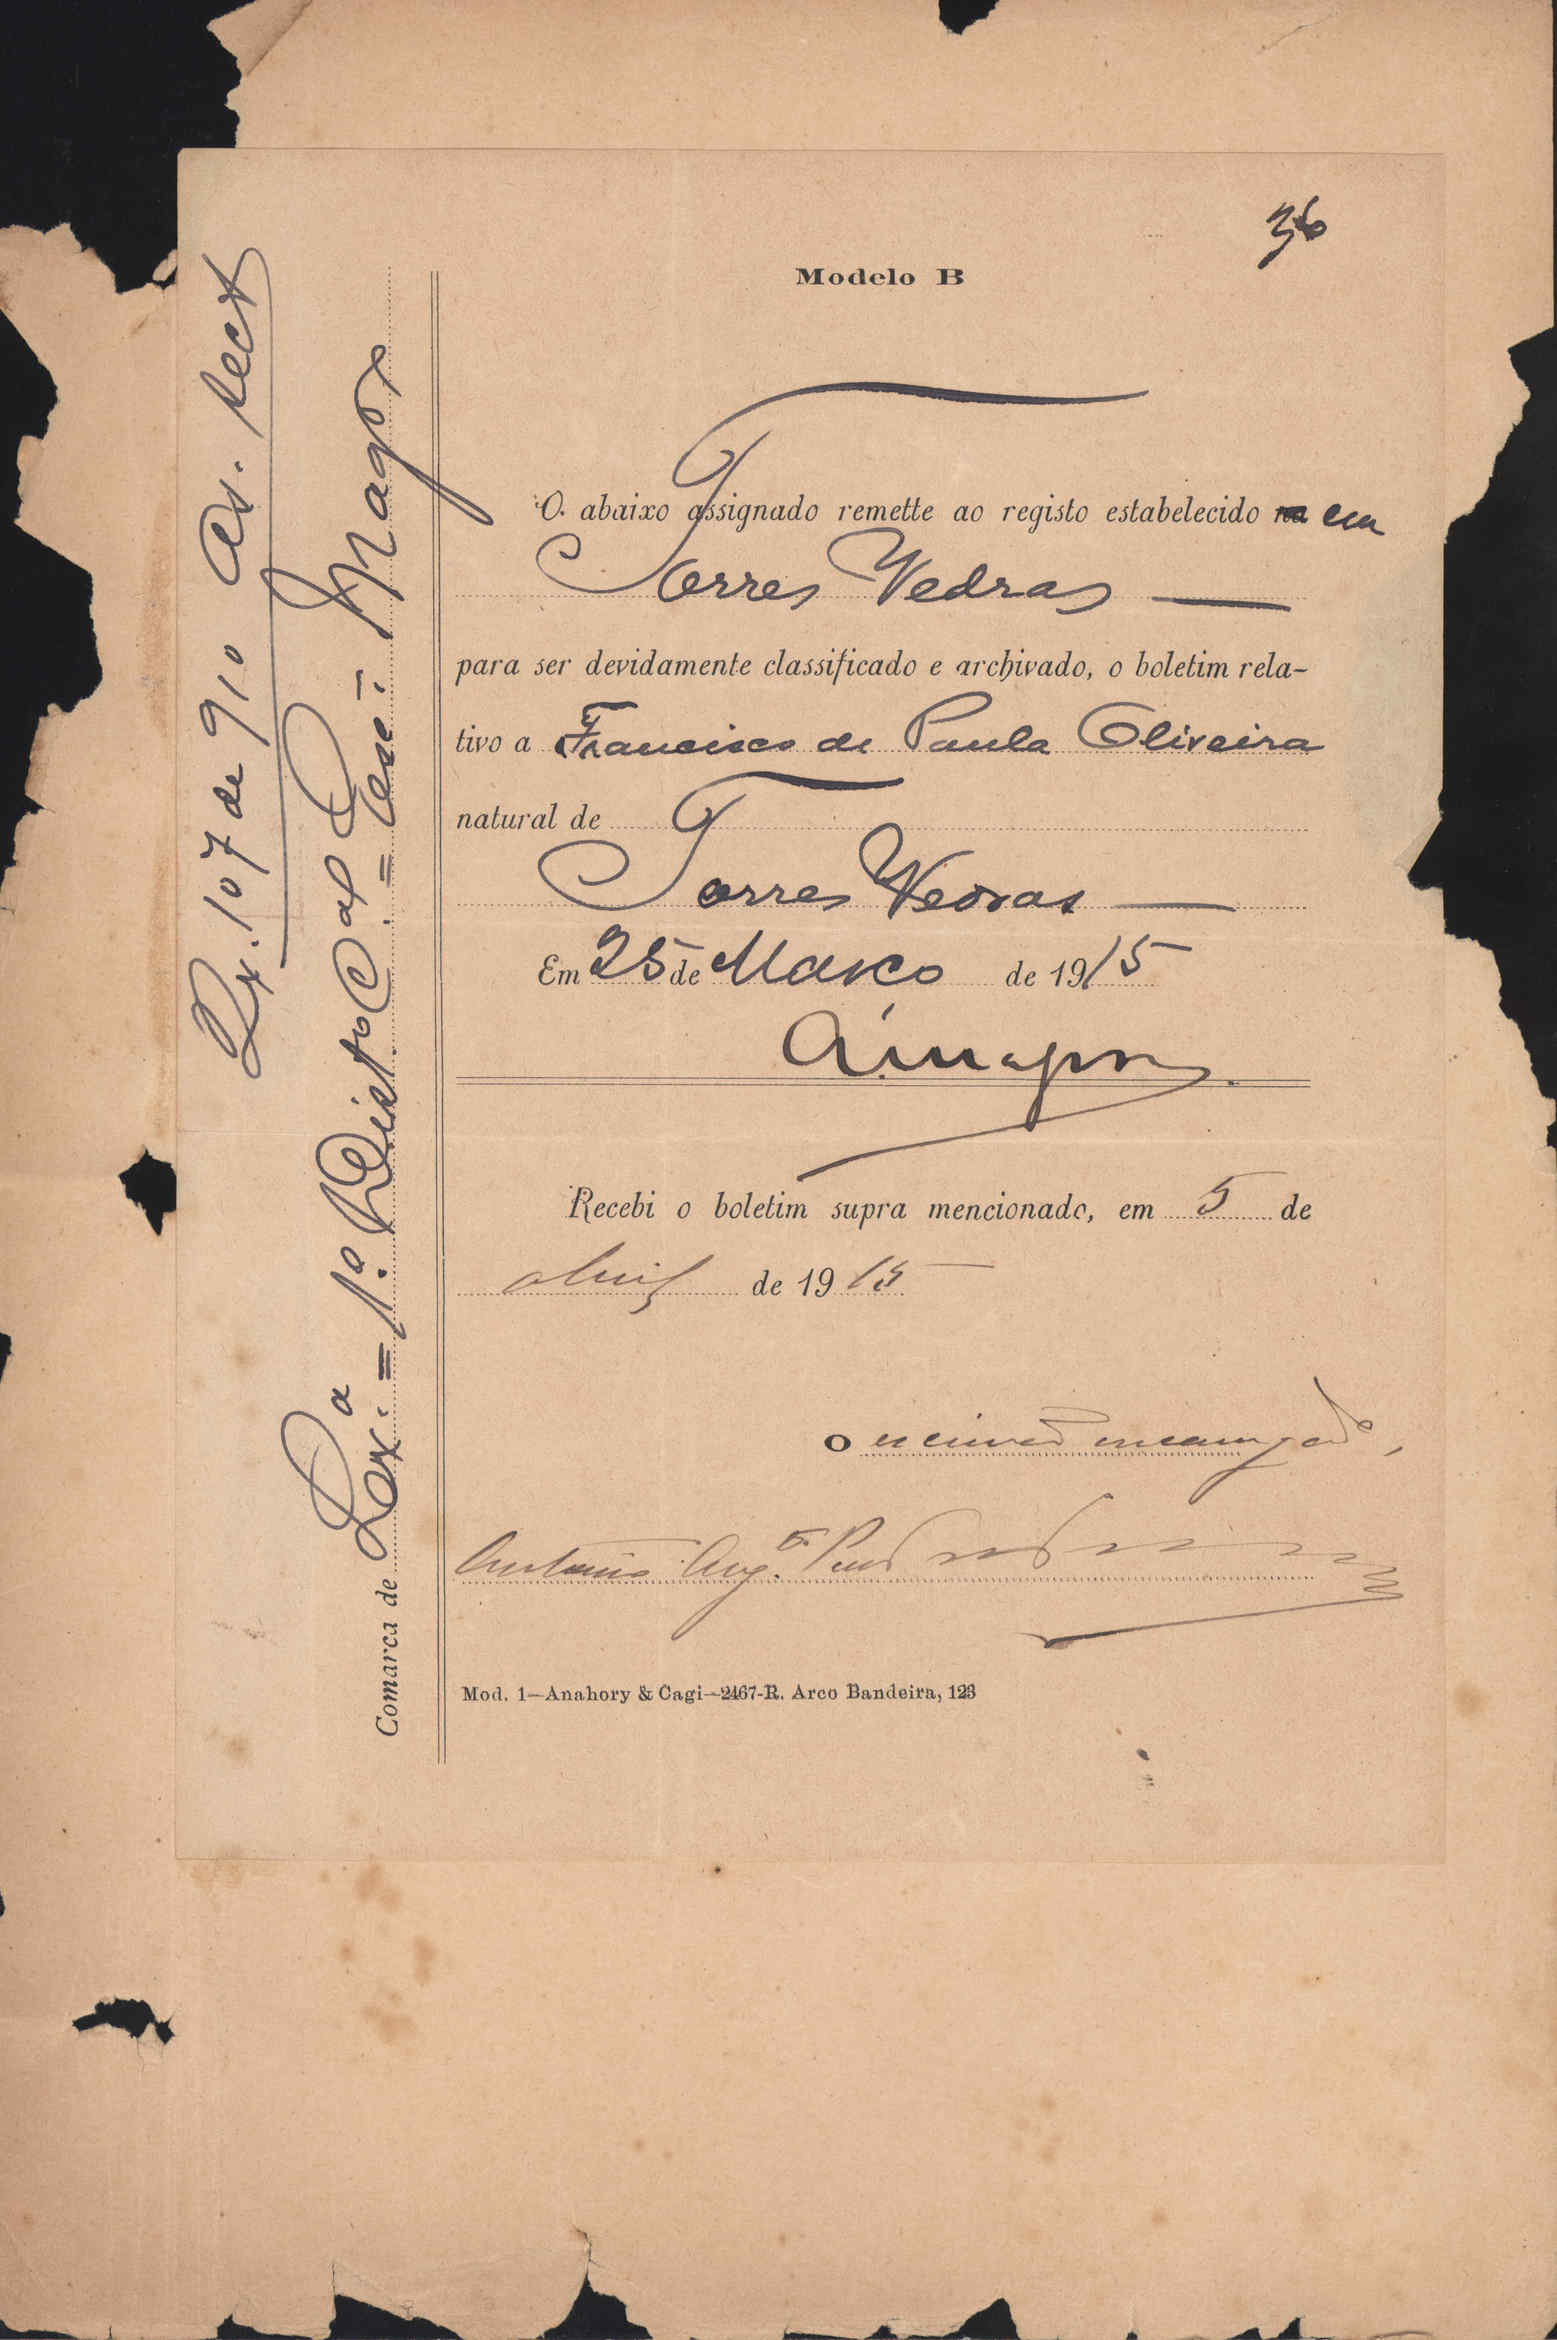 36
Modelo B
O abaixo assignado remette ao registo estabelecido na em
Torres Vedras
para ser devidamente classificado e archivado, o boletim rela-
tivo a Francisco de Paula Oliveira
natural de
Torres Vedras
Em 25 de Março de 1915
Recebi o boletim supra mencionado, em 5 de
abril de 1915
O escrivão encarregado,
Antonio Aug.to
Mod. 1—Anahory & Cagi—2467-R. Arco Bandeira, 123
Comarca de Lxª. = 1.º Disto
107 de 910